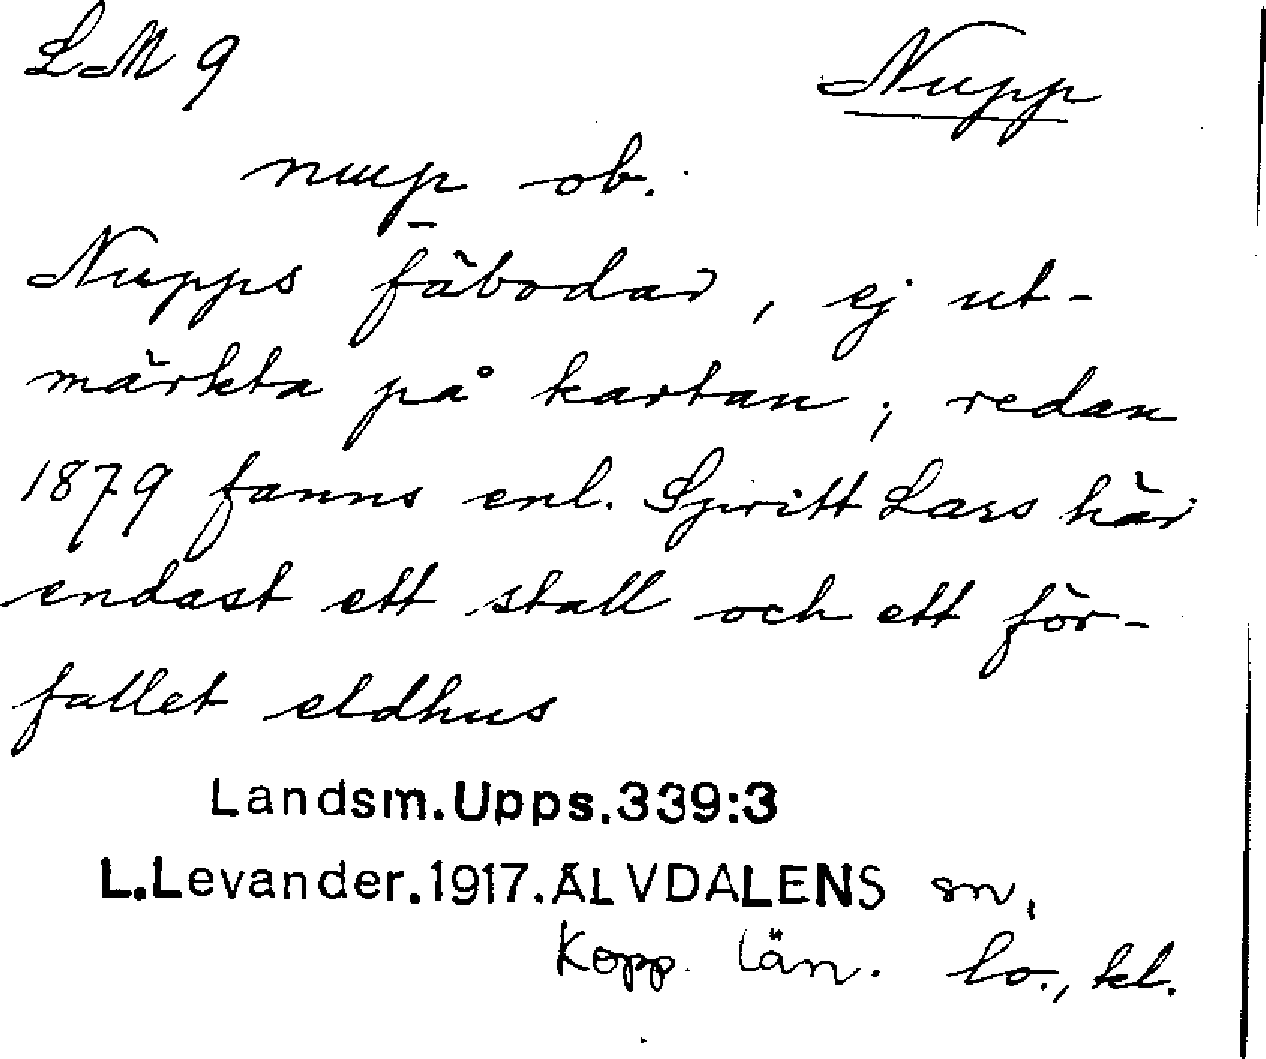 LM 9
Nupp
nup ob.
Nupps fäbodar, ej ut-
märkta på kartan; redan
1879 fanns enl. Spritt Lars här
endast ett stall och ett för-
fallet eldhus
Landsm.Upps.339:3
L.Levander.1917.ÄLVDALENS sn,
Kopp. län. lo., kl.